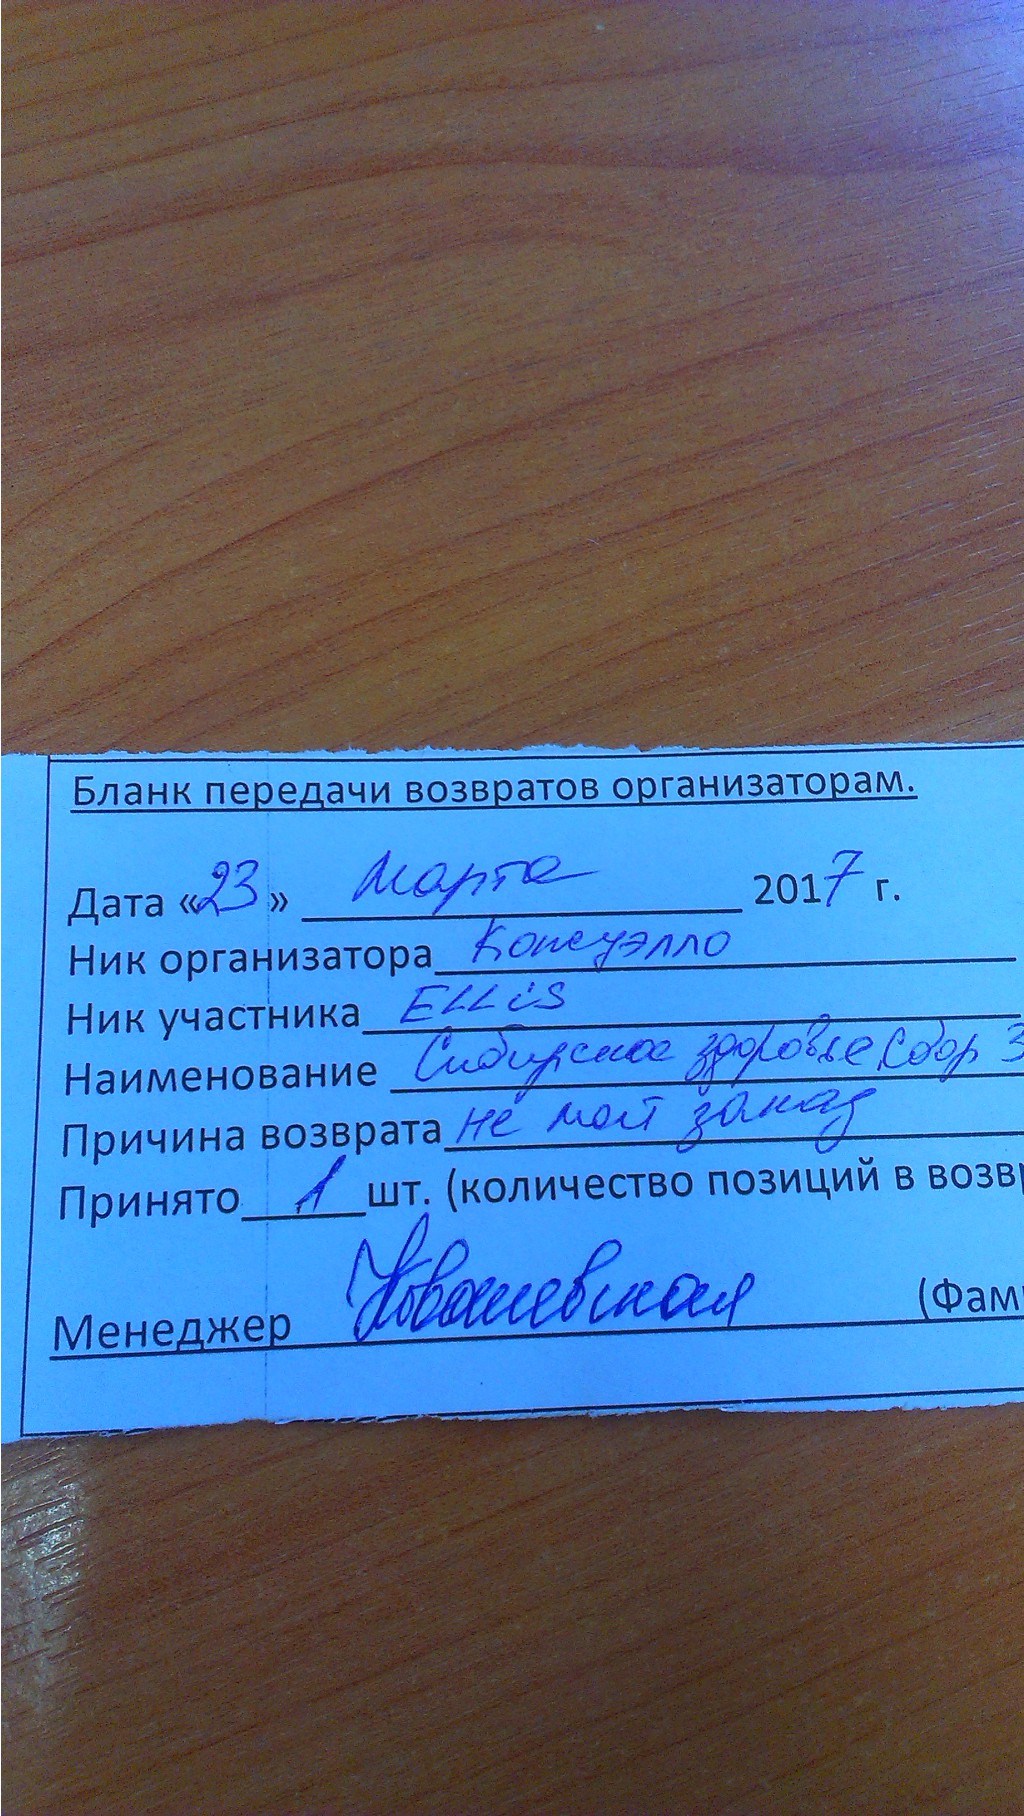 Бланк передачи возвратов организаторам.
Дата «23» марта 2017 г.
Ник организатора Консуэлло
Ник участника ELLiS
Наименование Сибирское здоровье, Сбор 3
Причина возврата не мой заказ
Принято 1 шт. (количество позиций в возвр
Менеджер (Фам